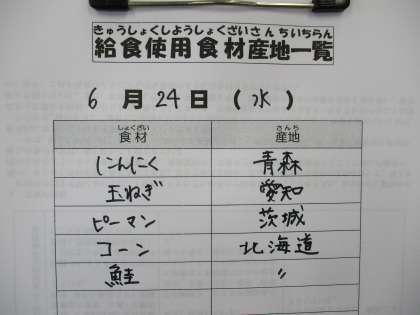 きゅうしょくしようしょくざいさんちいちらん
給食使用食材産地一覧
6月24日（水）
しょくざい さんち
食材 産地
にんにく 青森
玉ねぎ 愛知
ピーマン 茨城
コーン 北海道
鮭 〃